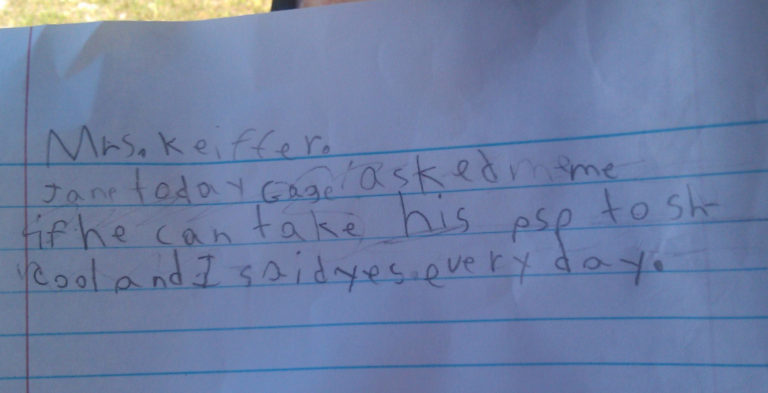 Mrs. Keiffer.
Jane today Gage asked me
if he can take his psp to sh-
cool and I said yes. every day.